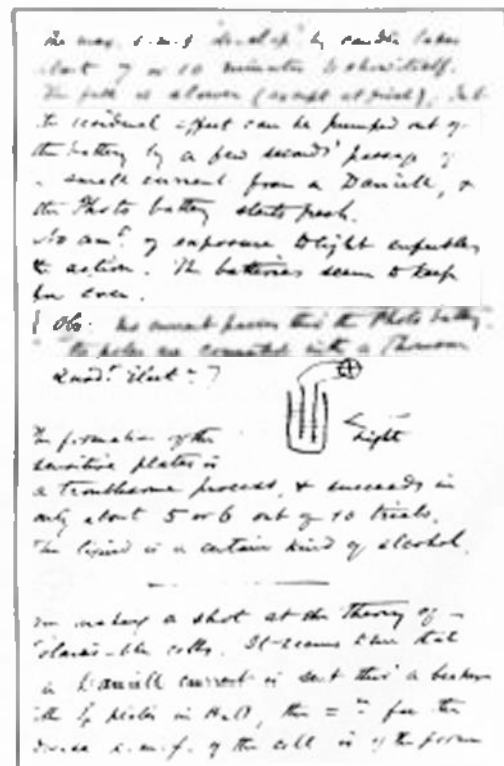 The max. e.m.f. develop'd by candle takes
about 7 or 10 minutes to show itself.
The fall is slower (except at first), but
the residual effect can be pumped out of
the battery by a few seconds' passage of
a small current from a Daniell, &
the Photo battery starts fresh.
No amt. of exposure to light enfeebles
the action. The batteries seem to keep
for ever.
{ Obs. No current passes thro' the Photo battery
the poles are connected with a Thomson
Quadt. Electr. }
Light
The formation of the
sensitive plates is
a troublesome process, & succeeds in
only about 5 or 6 out of 10 trials.
The liquid is a certain kind of alcohol.
making a shot at the Theory of
cells. It seems that
a Daniell current is sent thro' a beaker
with plates in it, the = n for the
e.m.f. of the cell is of the form